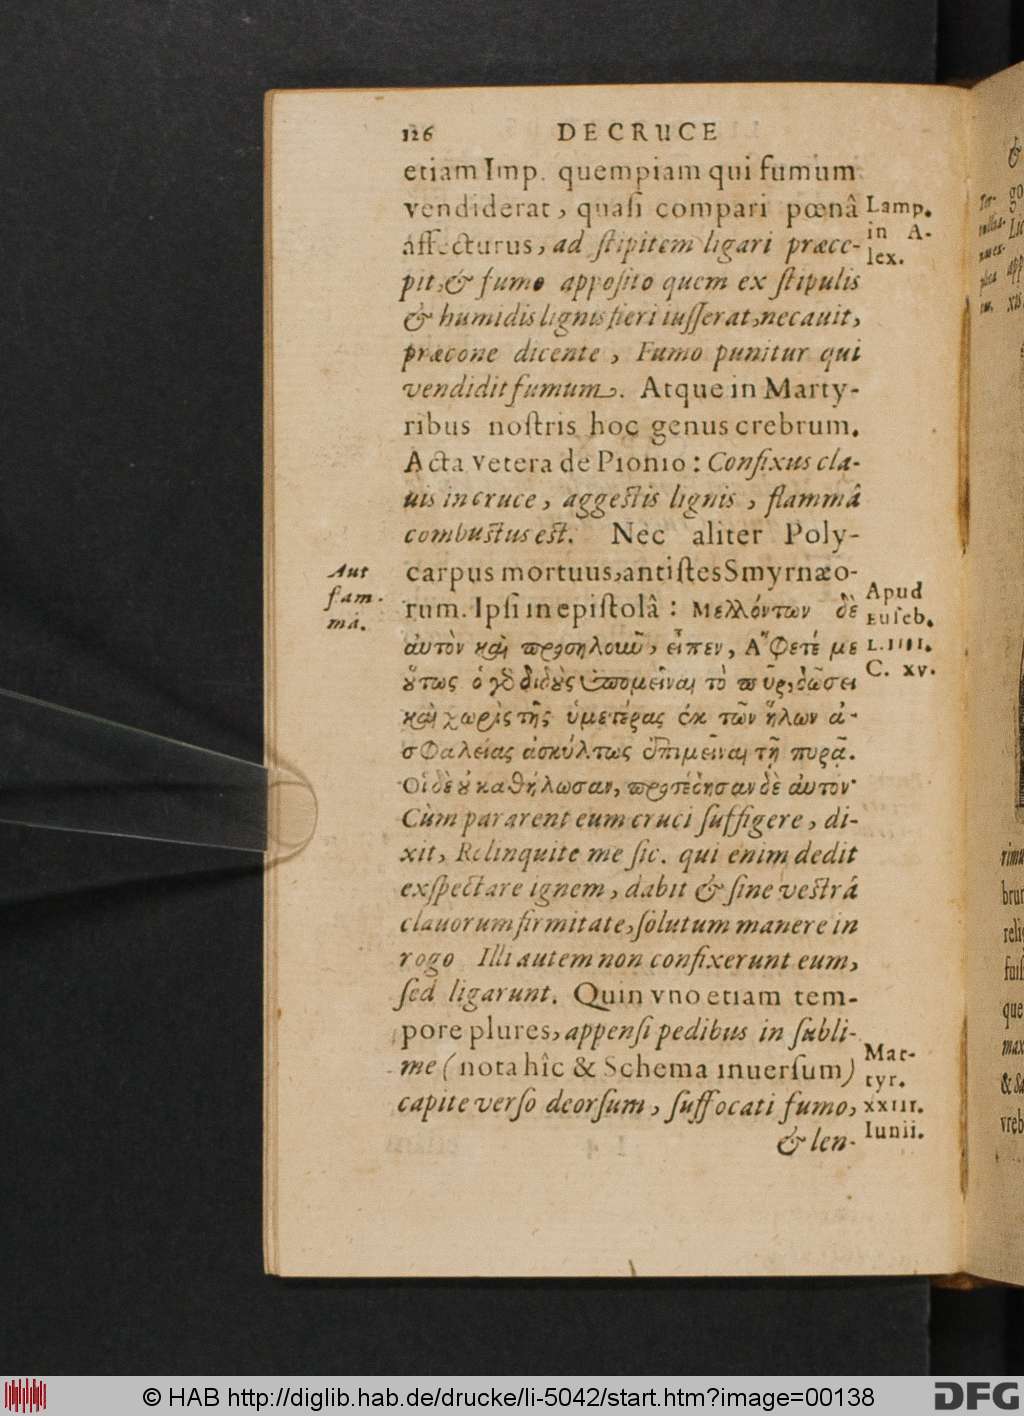 126 DE CRUCE
etiam Imp. quempiam qui fumum
vendiderat, quaſi compari pœnâ
affecturus, ad ſtipitem ligari præce-
pit, & fumo appoſito quem ex ſtipulis
& humidis lignis fieri iuſſerat, necauit,
præcone dicente, Fumo punitur qui
vendidit fumum. Atque in Marty-
ribus noſtris hoc genus crebrum.
Acta vetera de Pionio: Confixus cla-
uis in cruce, aggeſtis lignis, flammâ
combuſtus eſt. Nec aliter Poly-
carpus mortuus, antiſtes Smyrnæo-
rum. Ipſi in epiſtolâ: Μελλόντων δὲ
ἀυτὸν καὶ προσηλοῦν, εἶπεν, Ἄφετέ με
οὕτως ὁ γὸ διδοὺς ὑπομεῖναι τὸ πῦρ, δώσει
καὶ χωρὶς τῆς ὑμετέρας ἐκ τῶν ἥλων ἀ-
σφαλείας ἀσκύλτως ἐπιμεῖναι τῇ πυρᾷ.
Οἱ δὲ οὐ καθήλωσαν, προσέδησαν δὲ ἀυτόν·
Cùm pararent eum cruci ſuffigere, di-
xit, Relinquite me ſic. qui enim dedit
exſpectare ignem, dabit & ſine veſtrâ
clauorum firmitate, ſolutum manere in
rogo Illi autem non confixerunt eum,
ſed ligarunt. Quin vno etiam tem-
pore plures, appenſi pedibus in ſubli-
me (nota hîc & Schema inuerſum)
capite verſo deorſum, ſuffocati fumo,
& len-
Lamp.
in A-
lex.
Aut
flam-
mâ.
Apud
Euſeb.
L. IIII.
C. XV.
Mar-
tyr.
XXIII.
Iunii.
© HAB http://diglib.hab.de/drucke/li-5042/start.htm?image=00138
DFG